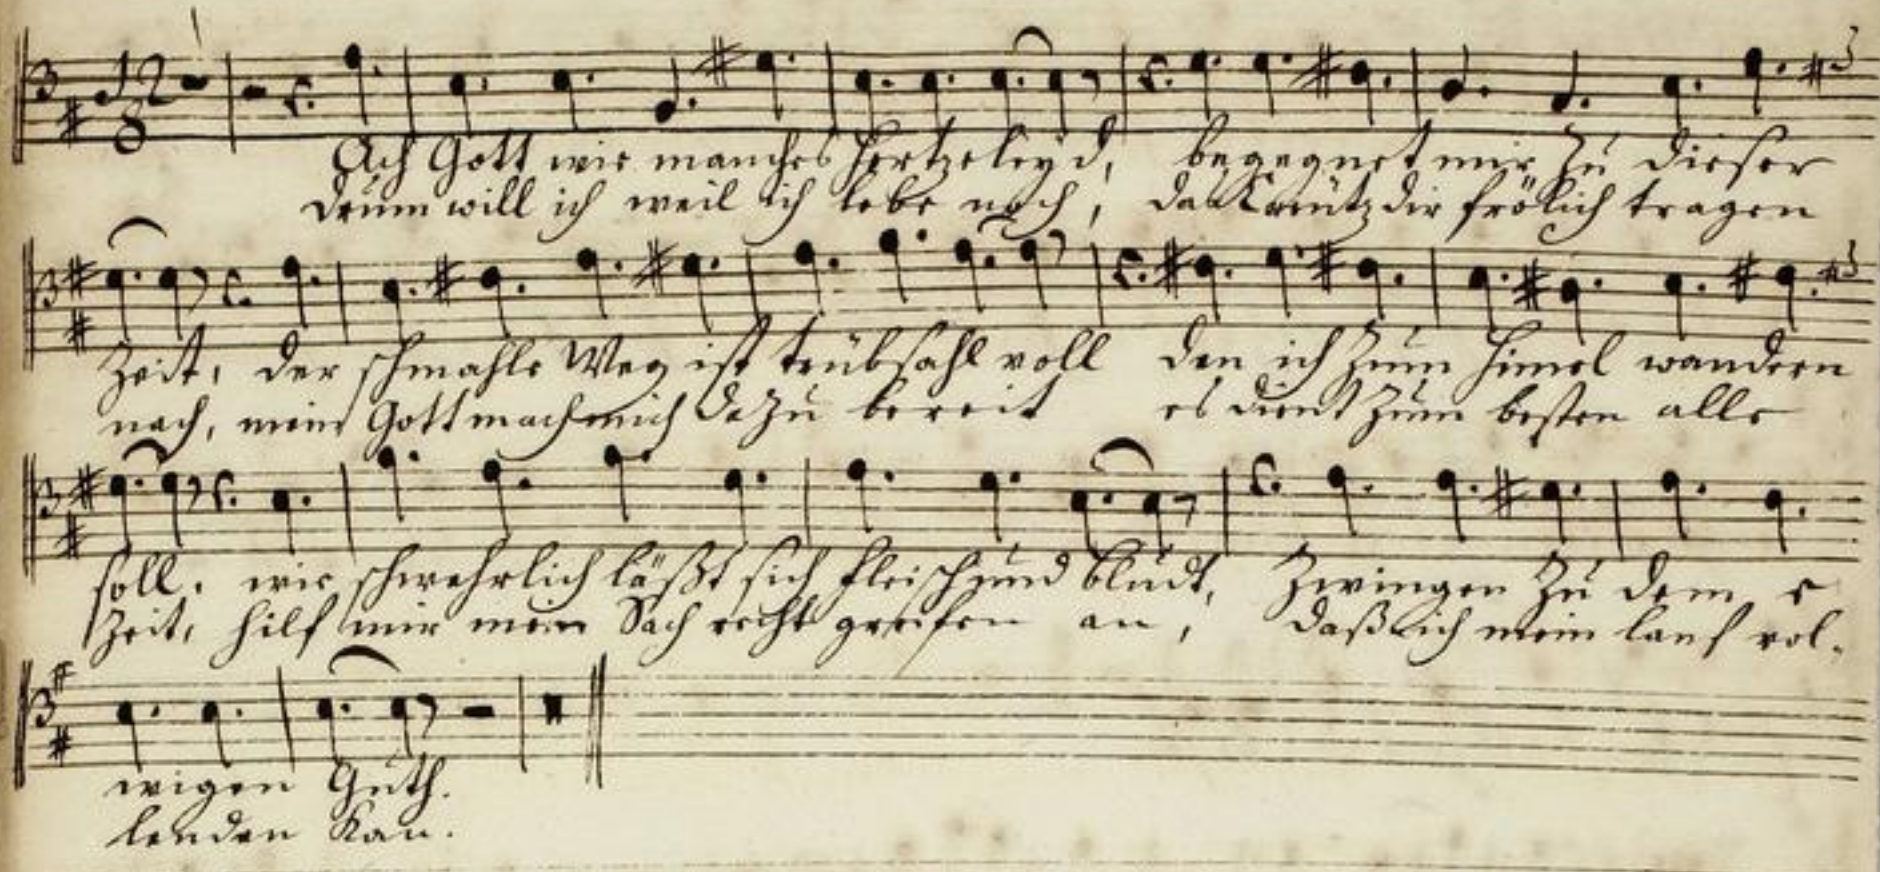 12
8
Ach Gott wie manches Hertzeleyd, begegnet mir zu dieser
drum will ich weil ich lebe noch, das Kreütz dir frölich tragen
Zeit, der schmahle Weg ist trübsahl voll den ich zum Himel wandern
nach, mein Gott mach mich dazu bereit es dient zum besten alle
soll. wie schwehrlich läßt sich fleisch und blůdt, zwingen zů dem e
Zeit, hilf mir mein Sach recht greifen an, daß ich mein lauf vol-
wigen Gůth.
lenden kan.